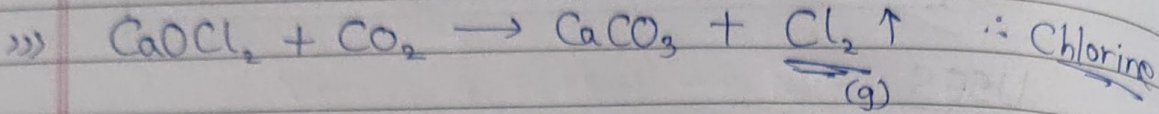 >>> CaOCl₂ + CO₂ → CaCO₃ + Cl₂ ↑ ∴ Chlorine
(g)